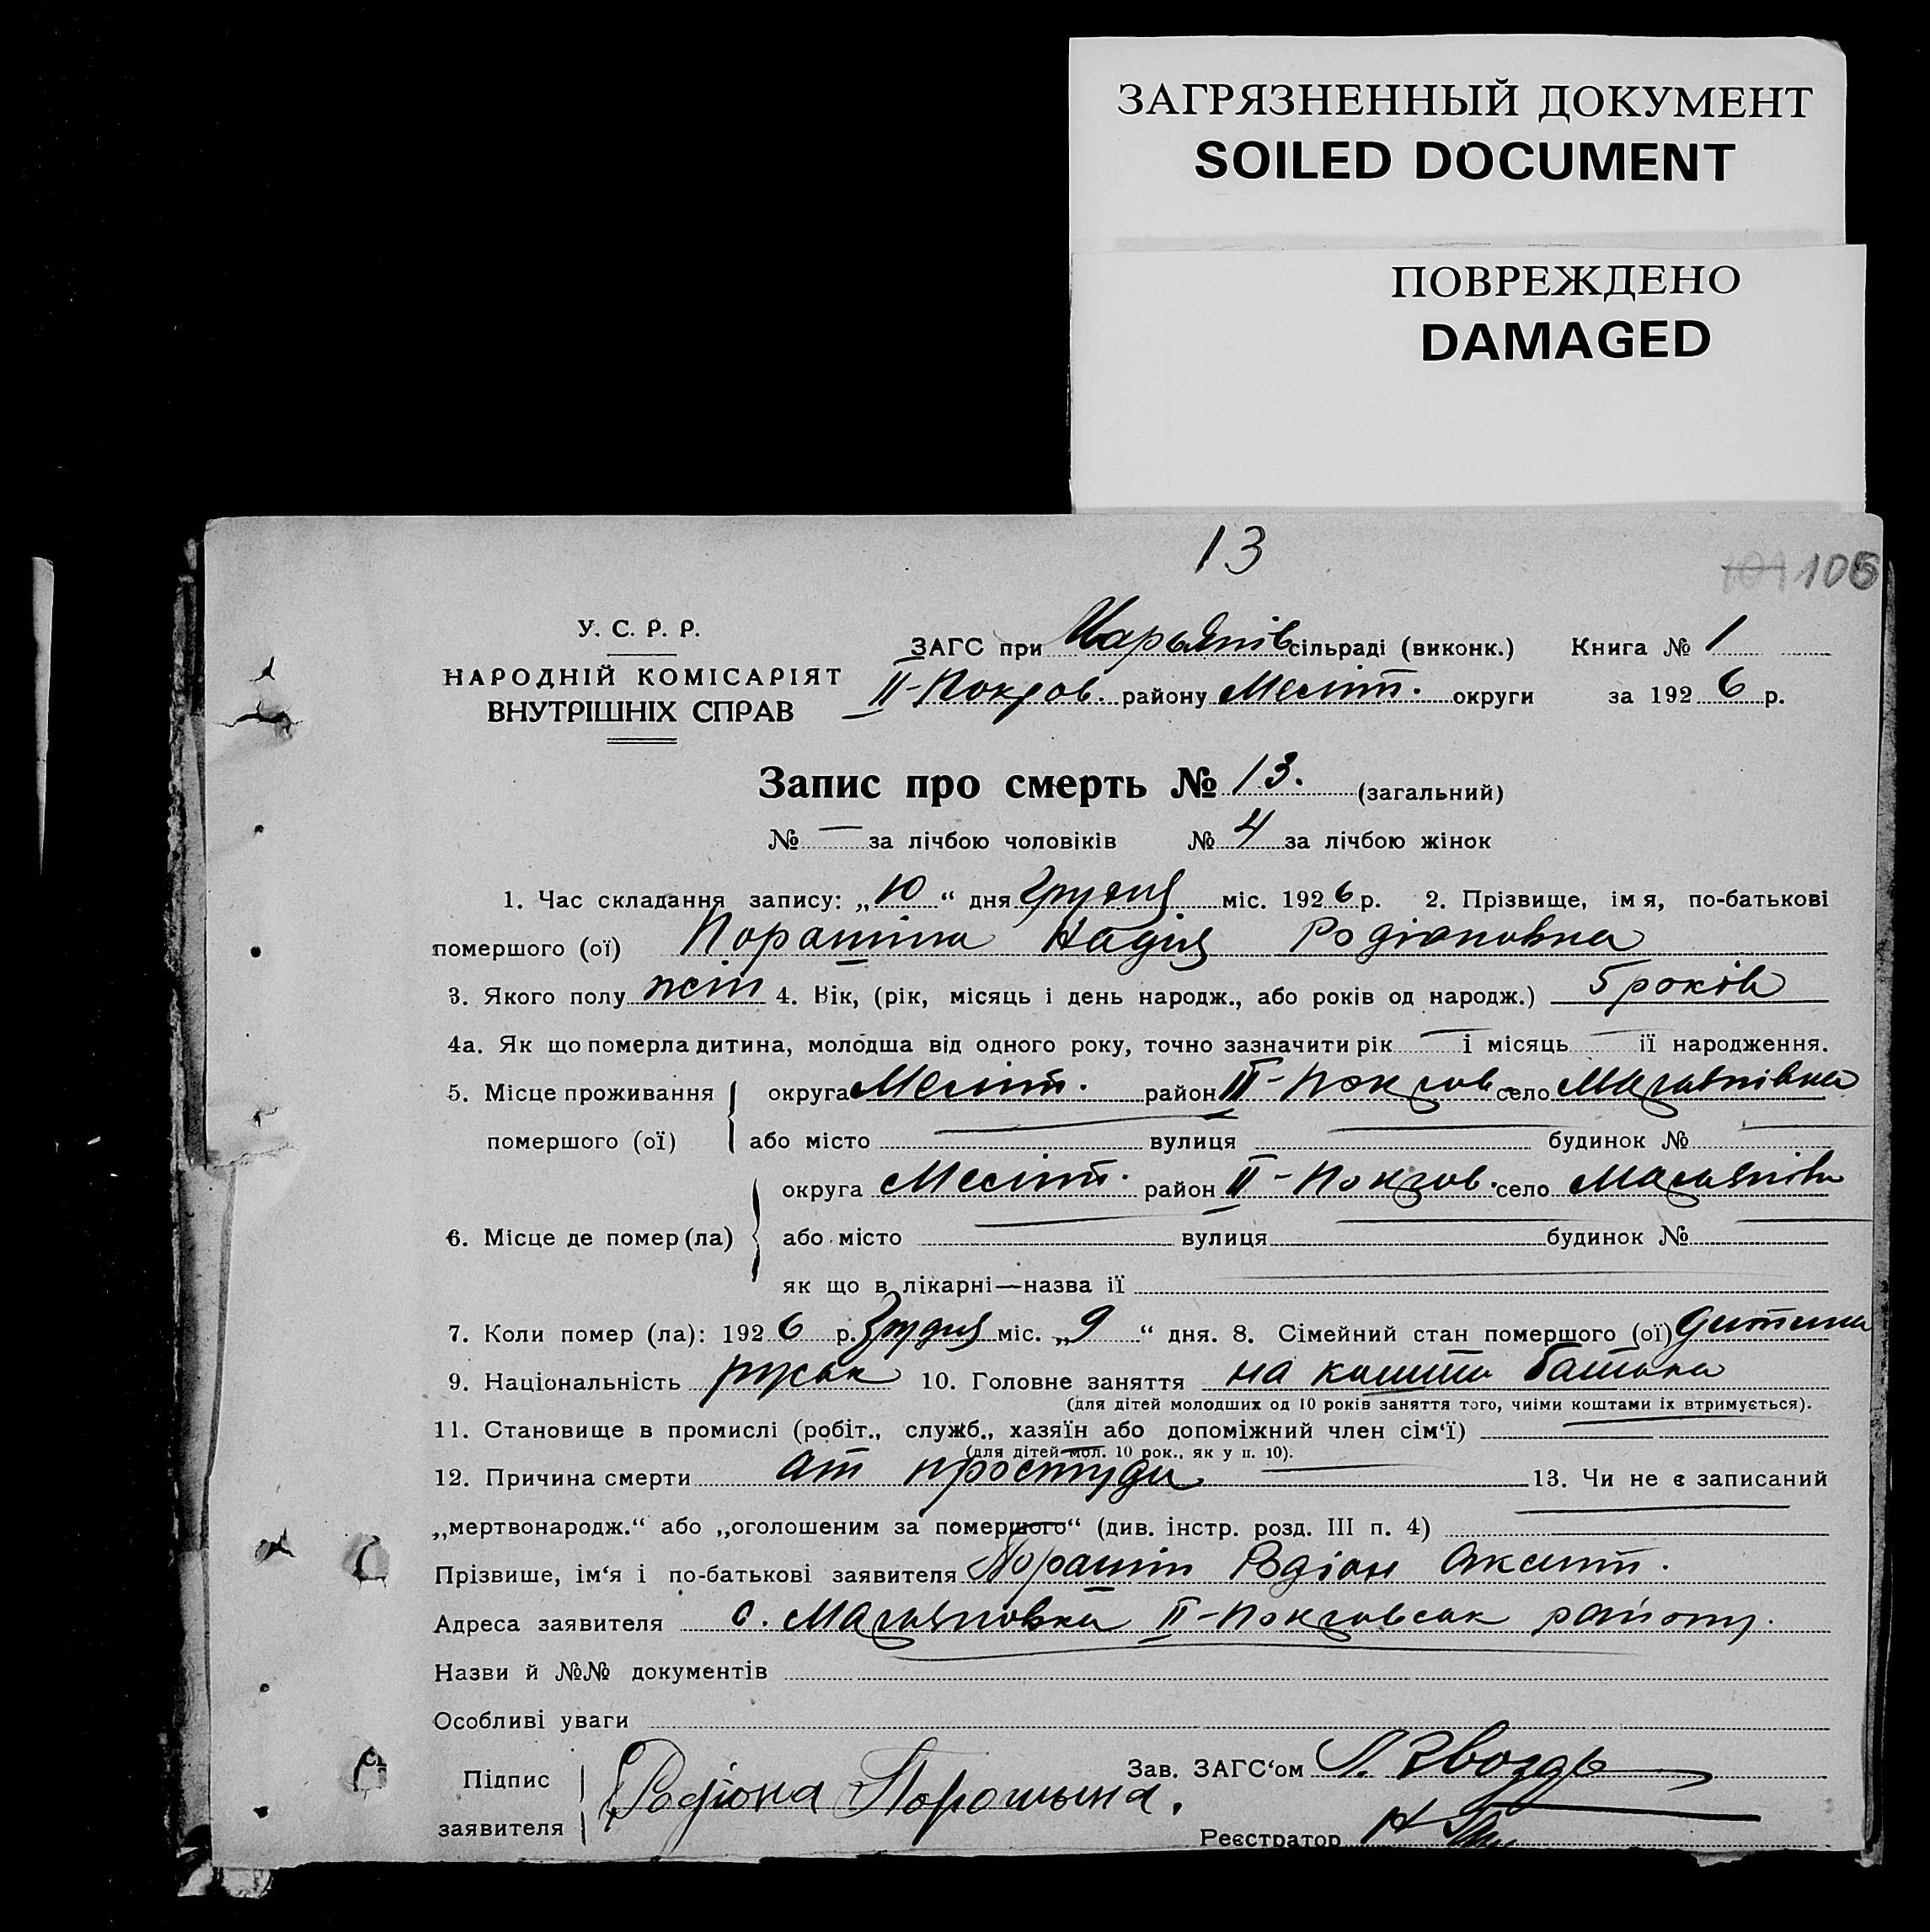 ЗАГРЯЗНЕННЫЙ ДОКУМЕНТ
SOILED DOCUMENT
ПОВРЕЖДЕНО
DAMAGED
13
101 106
У. С. Р. Р.
НАРОДНІЙ КОМІСАРІЯТ
ВНУТРІШНІХ СПРАВ
ЗАГС при Марьянів сільраді (виконк.) Книга № 1
ІІ-Покров. району Меліт. округи за 1926 р.
Запис про смерть № 13. (загальний)
№ — за лічбою чоловіків № 4 за лічбою жінок
1. Час складання запису: „10“ дня Грудня міс. 1926 р. 2. Прізвище, імя, по-батькові
помершого (ої) Порашіна Надія Родіоновна
3. Якого полу жін 4. Вік, (рік, місяць і день народж., або років од народж.) 5 років
4а. Як що померла дитина, молодша від одного року, точно зазначити рік — і місяць — її народження.
5. Місце проживання округа Меліт. район ІІ-Покров. село Марьянівка
помершого (ої) або місто — вулиця — будинок № —
округа Меліт. район ІІ-Покров. село Марьянівк
6. Місце де помер (ла) або місто — вулиця — будинок № —
як що в лікарні—назва її —
7. Коли помер (ла): 1926 р. Грудня міс. „9“ дня. 8. Сімейний стан помершого (ої) дитина
9. Національність руськ 10. Головне заняття на кошти батька
(для дітей молодших од 10 років заняття того, чиїми коштами їх втримується).
11. Становище в промислі (робіт., служб., хазяїн або допоміжний член сім‘ї) —
(для дітей мол. 10 рок., як у п. 10).
12. Причина смерти от простуди — 13. Чи не є записаний
„мертвонародж.“ або „оголошеним за помершого“ (див. інстр. розд. III п. 4) —
Прізвише, ім‘я і по-батькові заявителя Порашін Родіон
Адреса заявителя с. Марьяновка ІІ-Покровськ району.
Назви й №№ документів
Особливі уваги
Підпис
заявителя
Родіона Порошина.
Зав. ЗАГС‘ом Гвоздь
Реєстратор